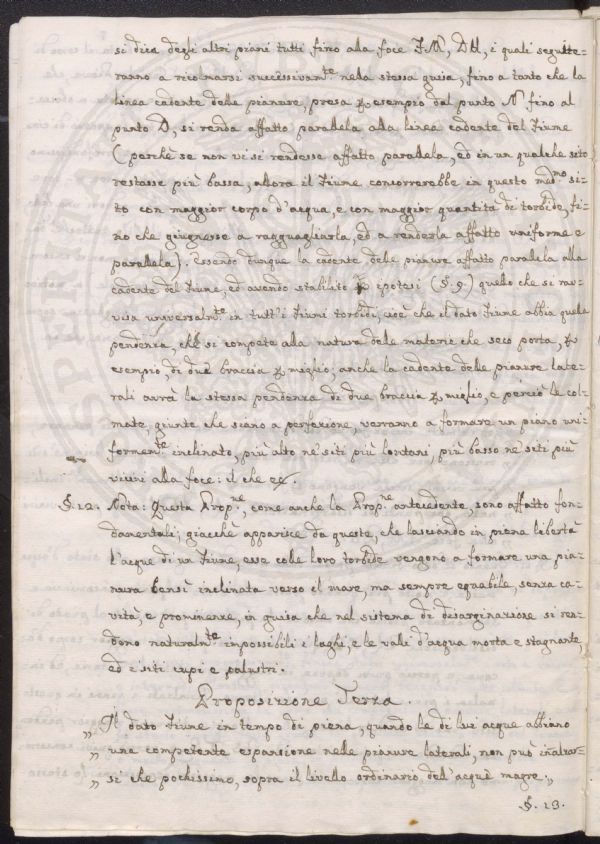 si dica degli altri piani tutti fino alla foce I.M, DM, i quali seguite=
ranno a ricolmarsi successivamte nella stessa guisa, fino a tanto che la
linea cadente delle pianure, presa p esempio dal punto N fino al
punto D, si renda affatto parallela alla linea cadente del Fiume
(perchè se non vi si rendesse affatto parallela, ed in un qualche sito
restasse più bassa, allora il Fiume concorrerebbe in questo medmo si=
to con maggior corpo d'acqua, e con maggior quantità di torbide, fi=
no che giugnesse a ragguagliarla, ed a renderla affatto uniforme e
parallela). Essendo dunque la cadente delle pianure affatto parallela alla
cadente del Fiume, ed avendo stabilito p ipotesi (§.9) quello che si rav=
visa universalmte in tutt'i Fiumi torbidi, cioè che il dato Fiume abbia quella
pendenza, che si compete alla natura delle materie che seco porta, p
esempio, di due braccia p miglio; anche la cadente delle pianure late=
rali avrà la stessa pendenza di due braccia p miglio, e perciò le col=
mate, giunte che siano a perfezione, verranno a formare un piano uni=
formemte inclinato, più alto ne' siti più lontani, più basso ne' siti più
vicini alla foce: il che ec.
§.12. Nota: Questa Propne, come anche la Propne antecedente, sono affatto fon=
damentali; giacchè apparisce da queste, che lasciando in piena libertà
l'acque di un Fiume, esse colle loro torbide vengono a formare una pia=
nura bensì inclinata verso il mare, ma sempre equabile, senza ca=
vità, e prominenze, in guisa che nel sistema di disarginazione si ren=
dono naturalmte impossibili i laghi, e le valli d'acqua morta e stagnante,
ed i siti cupi e palustri.
Proposizione Terza
„ Il dato Fiume in tempo di piena, quando le di lui acque abbiano
„ una competente espansione nelle pianure laterali, non può inalzar=
„ si che pochissimo, sopra il livello ordinario dell'acque magre. „
§. 13.